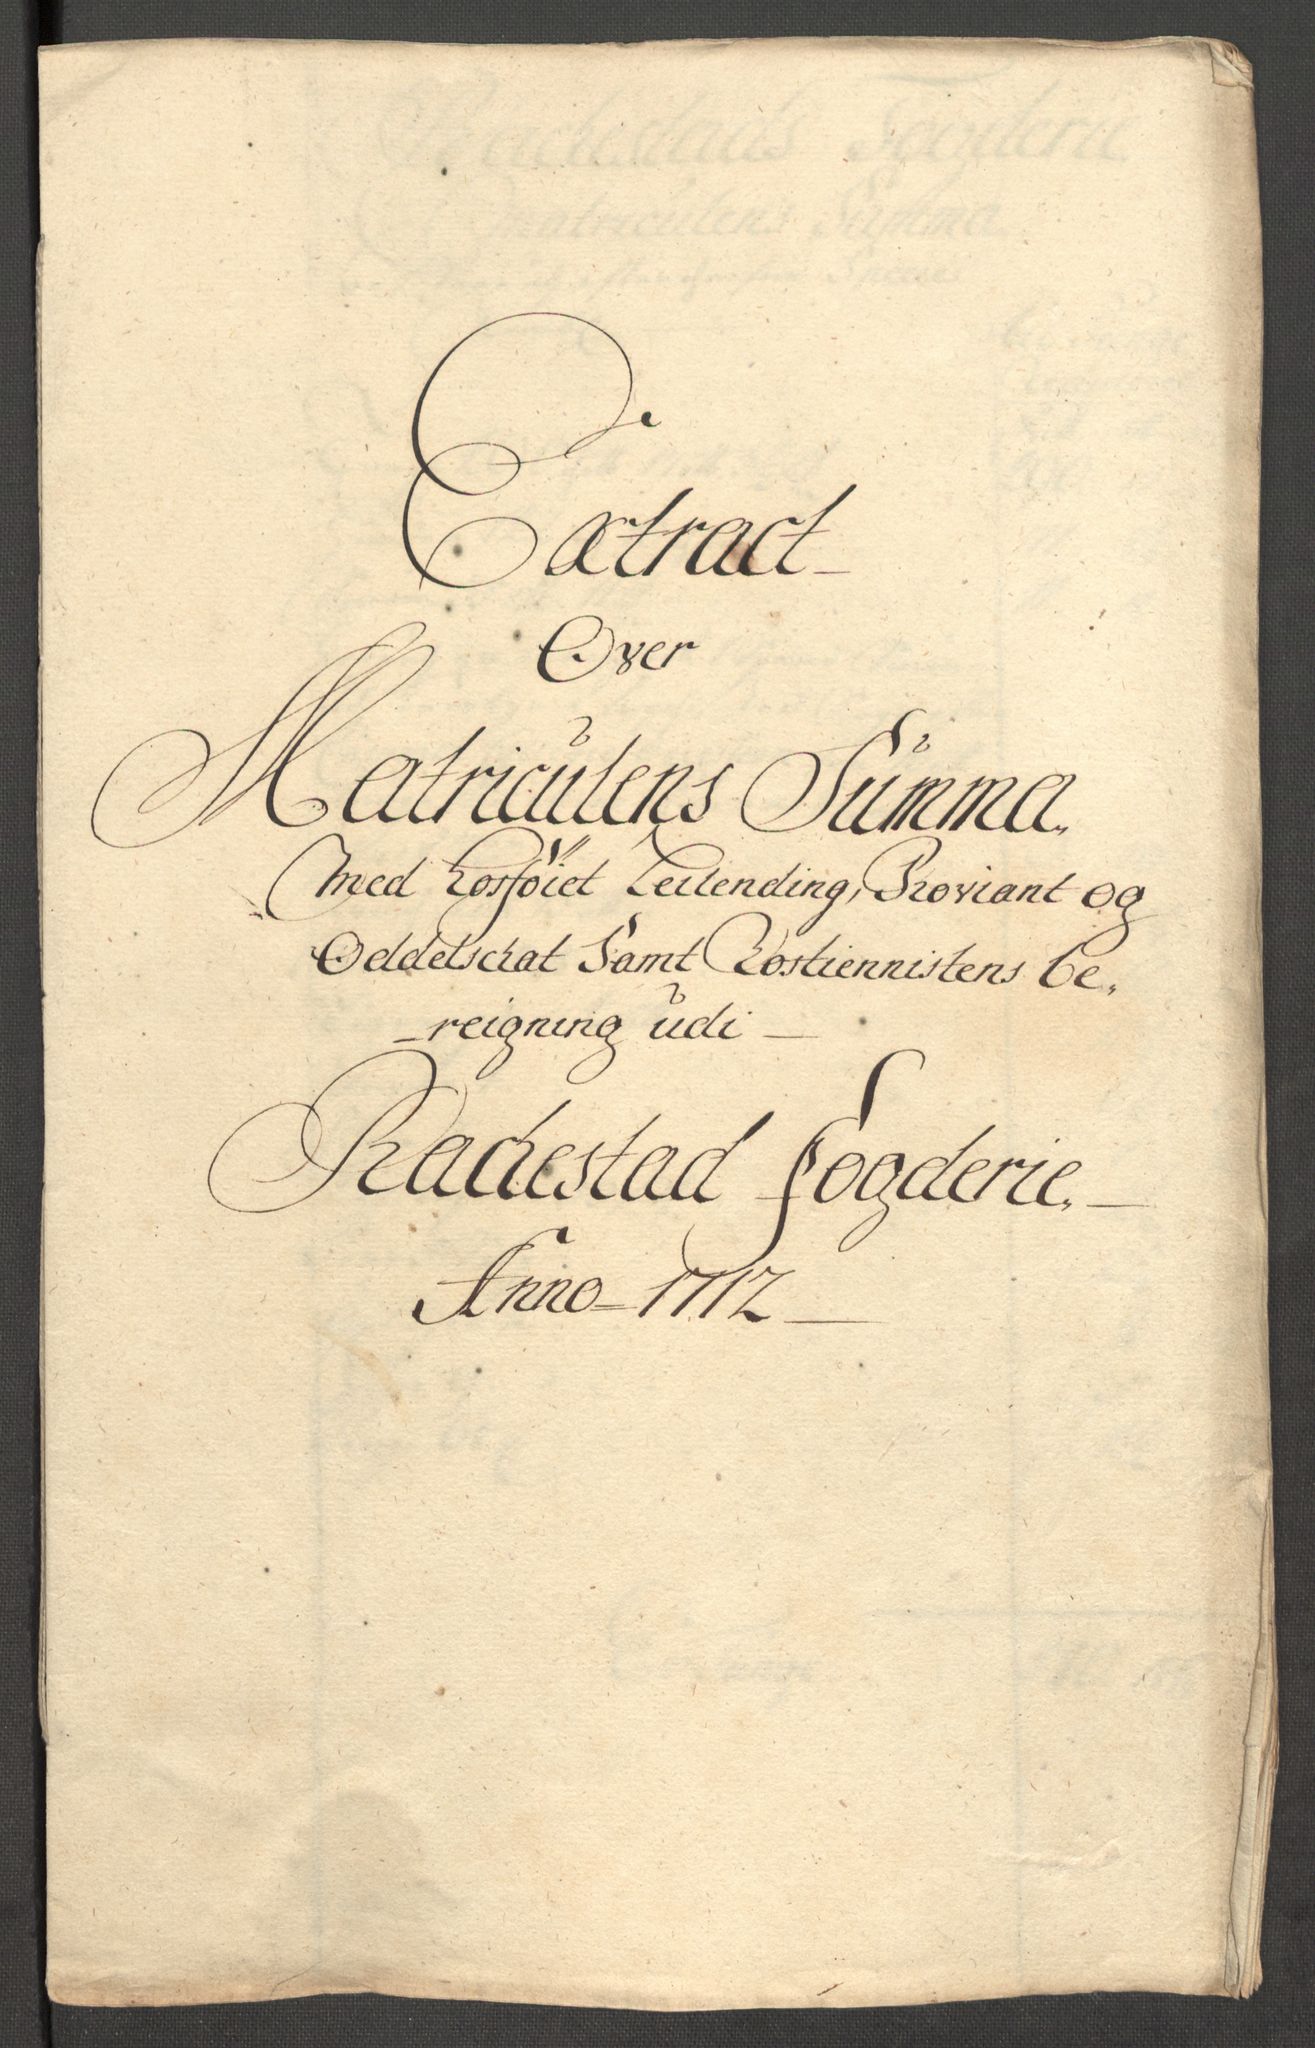 Extract
Over
Matriculens Summa
Med hosføiet Leilending, Proviant og
Oddelschat Samt Rostiennistens be,
reigning udi
Rachestad fogderie
Anno 1712